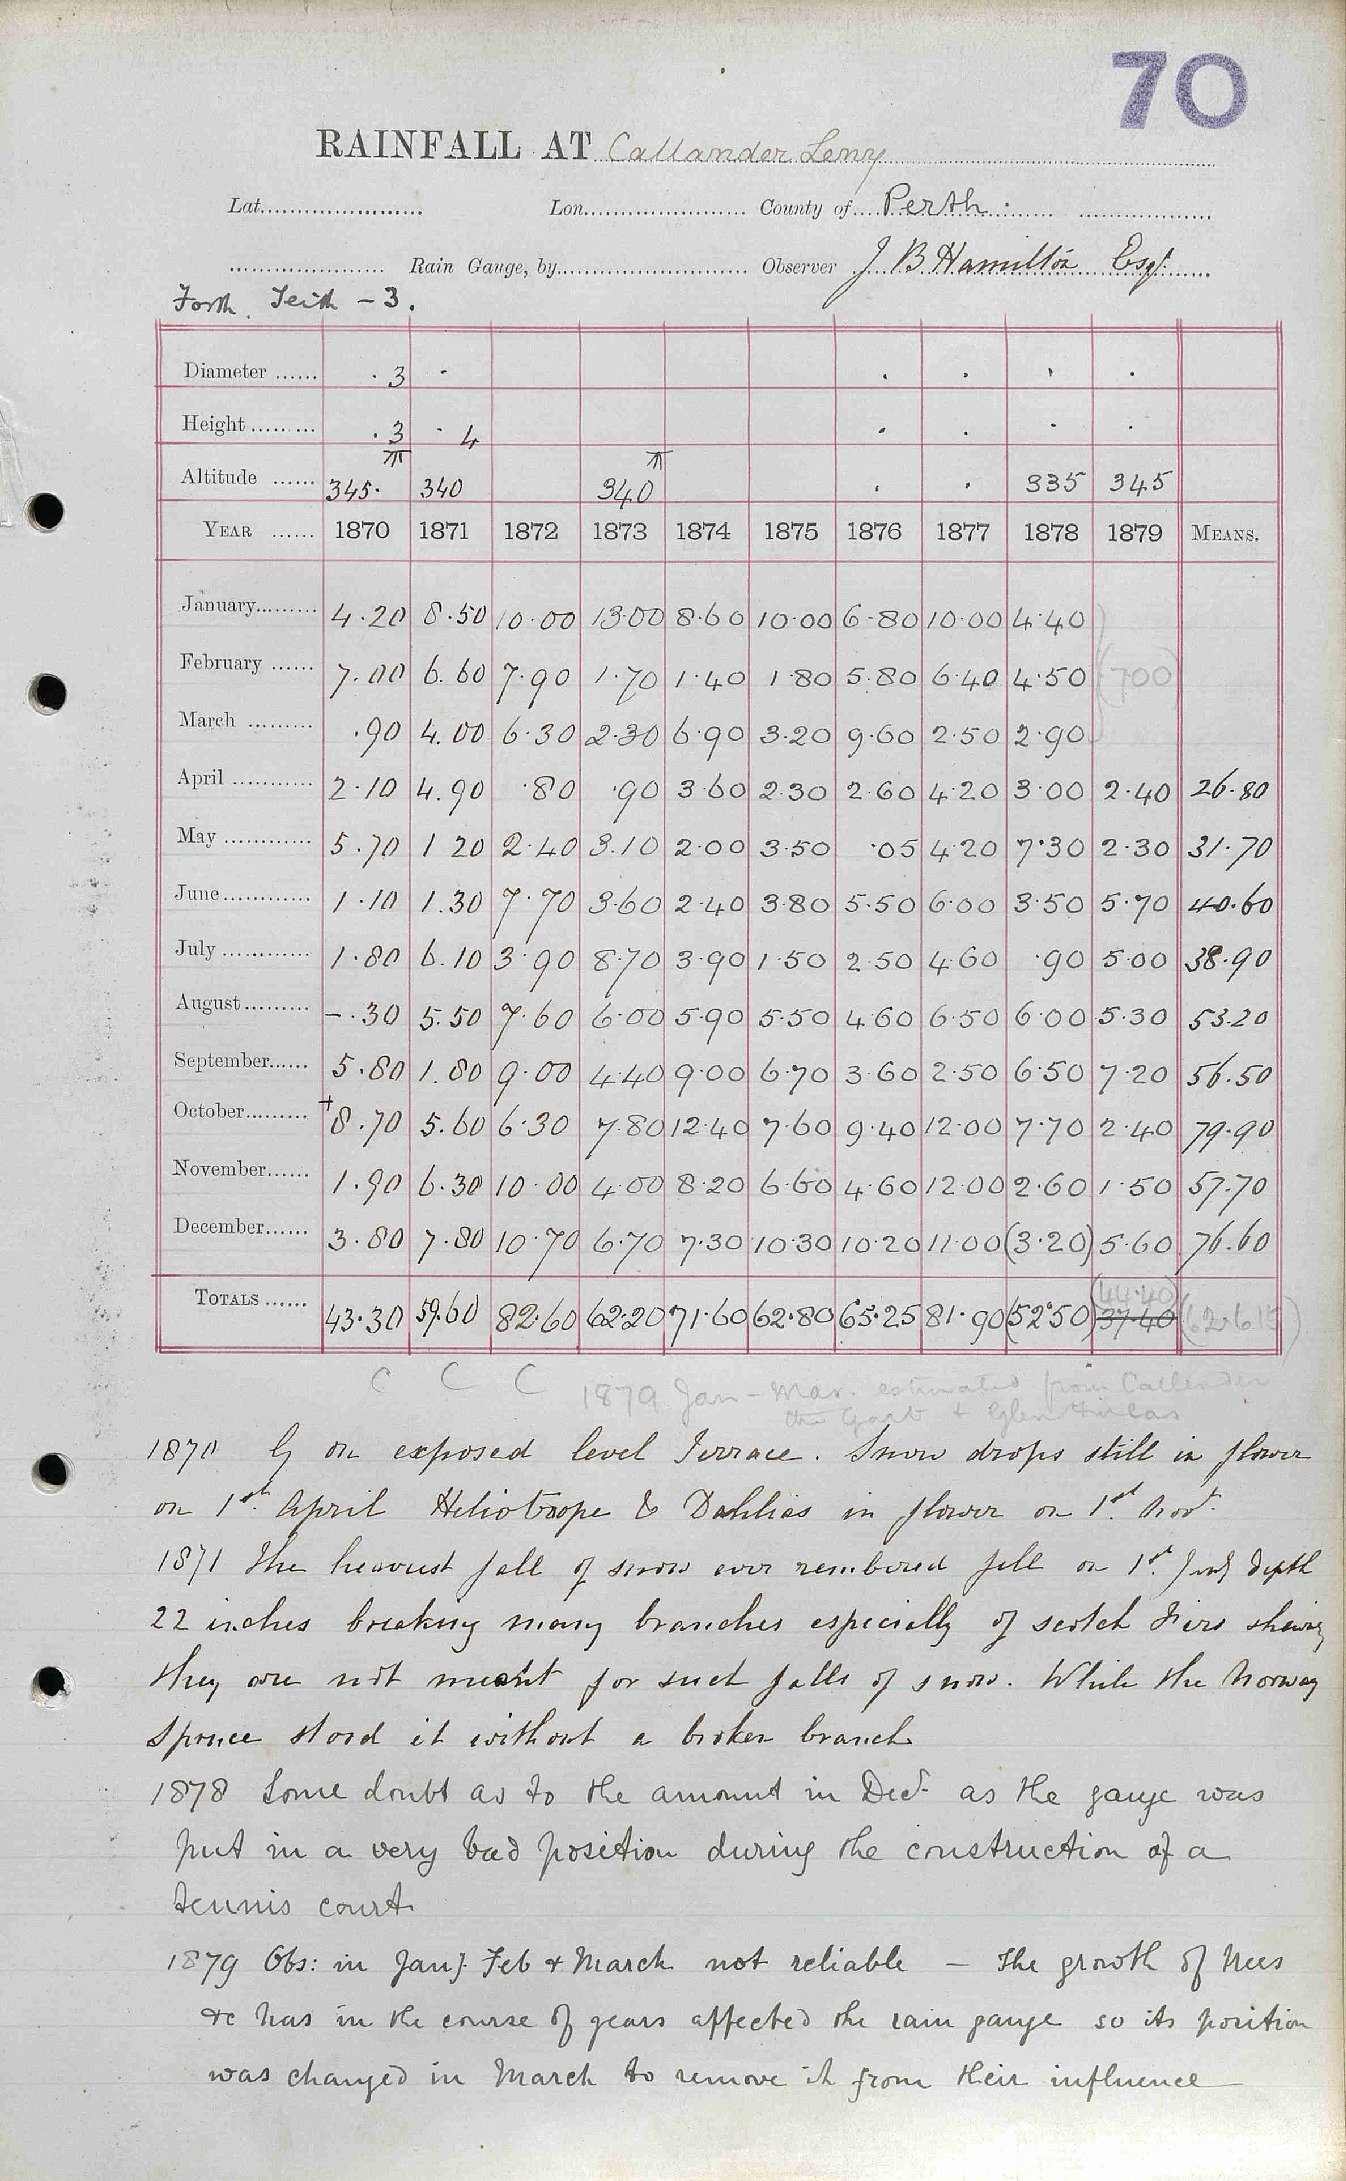 70
RAINFALL AT Callander Leny
Lat. Lon. County of Perth.
Rain Gauge, by Observer J B Hamilton Esqr.
Forth. Teith - 3.
Diameter . 3 . . . . .
Height . 3 . 4 . . . .
Altitude 345. 340 340 . . 335 345
YEAR 1870 1871 1872 1873 1874 1875 1876 1877 1878 1879 MEANS.
January 4.20 8.50 10.00 13.00 8.60 10.00 6.80 10.00 4.40
February 7.00 6.60 7.90 1.70 1.40 1.80 5.80 6.40 4.50 (700)
March .90 4.00 6.30 2.30 6.90 3.20 9.60 2.50 2.90
April 2.10 4.90 .80 .90 3.60 2.30 2.60 4.20 3.00 2.40 26.80
May 5.70 1 20 2.40 3.10 2.00 3.50 .05 4.20 7.30 2.30 31.70
June 1.10 1.30 7.70 3.60 2.40 3.80 5.50 6.00 3.50 5.70 40.60
July 1.80 6.10 3.90 8.70 3.90 1.50 2.50 4.60 .90 5.00 38.90
August -.30 5.50 7.60 6.00 5.90 5.50 4.60 6.50 6.00 5.30 53.20
September 5.80 1.80 9.00 4.40 9.00 6.70 3.60 2.50 6.50 7.20 56.50
October +8.70 5.60 6.30 7.80 12.40 7.60 9.40 12.00 7.70 2.40 79.90
November 1.90 6.30 10.00 4.00 8.20 6.60 4.60 12.00 2.60 1.50 57.70
December 3.80 7.80 10.70 6.70 7.30 10.30 10.20 11.00 (3.20) 5.60 76.60
(44.40)
TOTALS 43.30 59.60 82.60 62.20 71.60 62.80 65.25 81.90 (52.50) 37.40 (62.615)
C C C 1879 Jan - Mar. estimated from Callender
the Gart + Glen Finlas
1870 G on exposed level Terrace. Snow drops still in flower
on 1st. April Heliotrope & Dahlias in flower on 1st. Novr.
1871 The heaviest fall of snow ever rembered fell on 1st. Jany depth
22 inches breaking many branches especially of scotch Firs shewing
they are not meant for such falls of snow. While the Norway
Spruce stood it without a broken branch
1878 Some doubt as to the amount in Decr as the gauge was
put in a very bad position during the construction of a
tennis court
1879 Obs: in Jany. Feb + March not reliable - the growth of trees
&c has in the course of years affected the rain gauge so its position
was changed in March to remove it from their influence